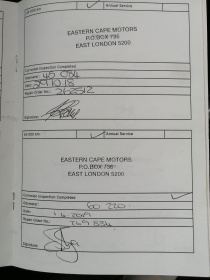 Annual Service
EASTERN CAPE MOTORS
P.O.BOX 736
EAST LONDON 5200
Corrosion Inspection Completed
Odometer:
45 034
Date:
29.10.18
Repair Order No.:
Signature:
Annual Service
EASTERN CAPE MOTORS
P.O.BOX 736
EAST LONDON 5200
Corrosion Inspection Completed
Odometer:
60 220
Date:
1.4.2019
Repair Order No.:
269834
Signature: